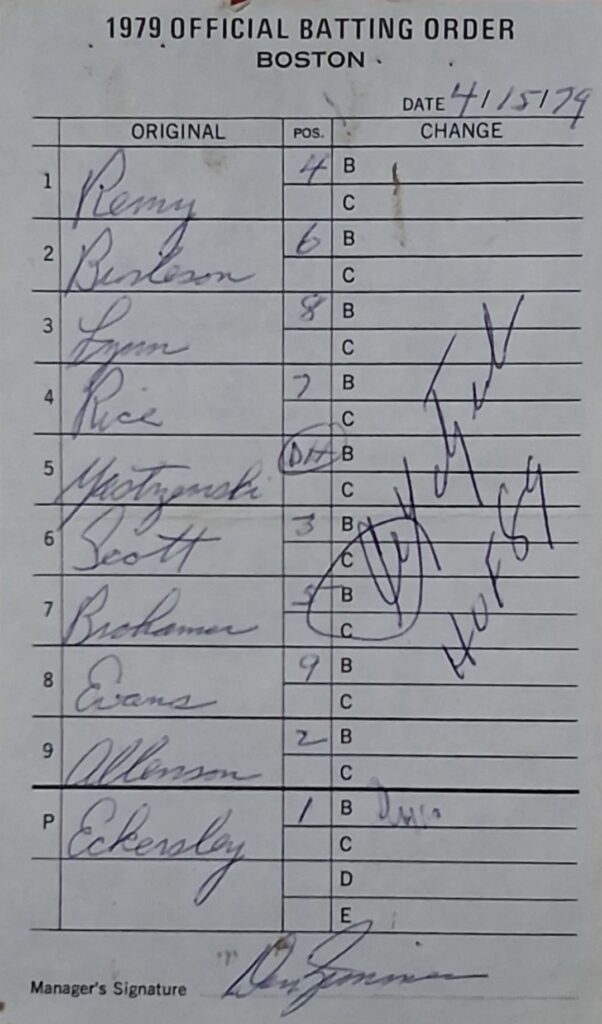 1979 OFFICIAL BATTING ORDER
BOSTON
DATE 4/15/79
ORIGINAL POS. CHANGE
1 Remy 4 B
C
2 Burleson 6 B
C
3 Lynn 8 B
C
4 Rice 7 B
C
5 Yastrzemski DH B
C
6 Scott 3 B
C
7 Brohamer 5 B
C
8 Evans 9 B
C
9 Allenson 2 B
C
P Eckersley 1 B
C
D
E
HOF 89
Manager's Signature Don Zimmer